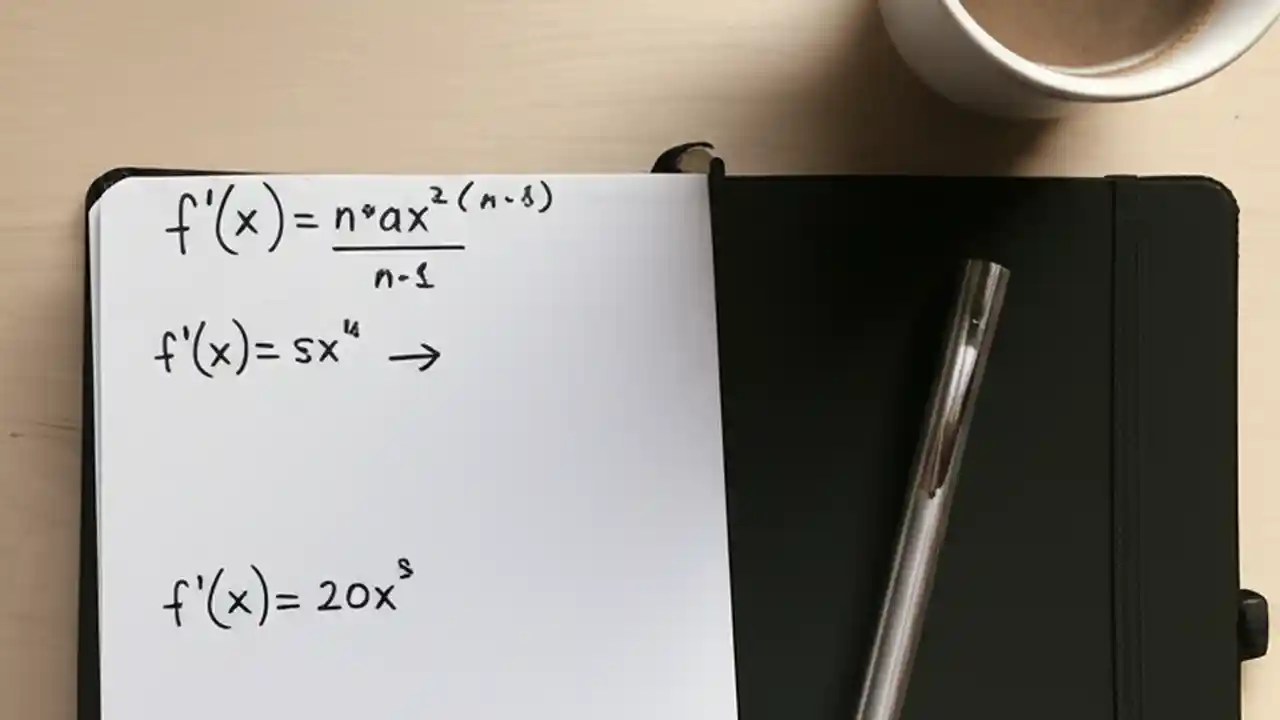 f'(x) = n•ax² (n-1)
n-1
f'(x) = 5x⁴ →
f'(x) = 20x